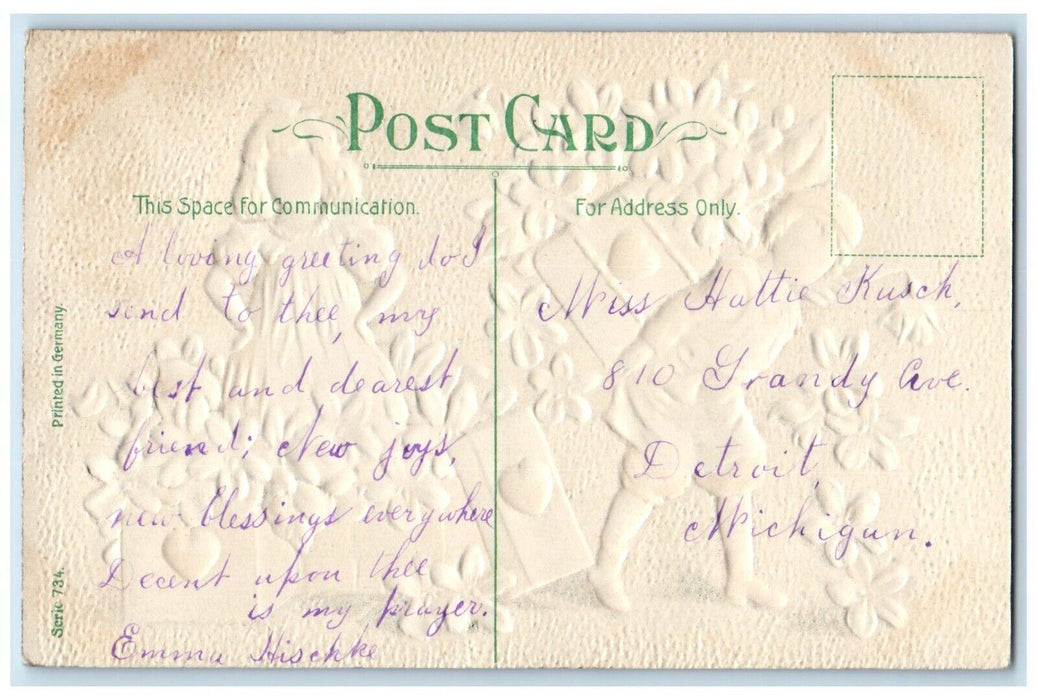 POST CARD
This Space for Communication.
A loving greeting do I
send to thee, my
best and dearest
friend; New joys,
new blessings everywhere
Decent upon thee
is my prayer.
Emma Hischke
For Address Only.
Miss Hattie Kusch,
810 Grandy Ave.
Detroit,
Michigan.
Printed in Germany.
Serie 734.